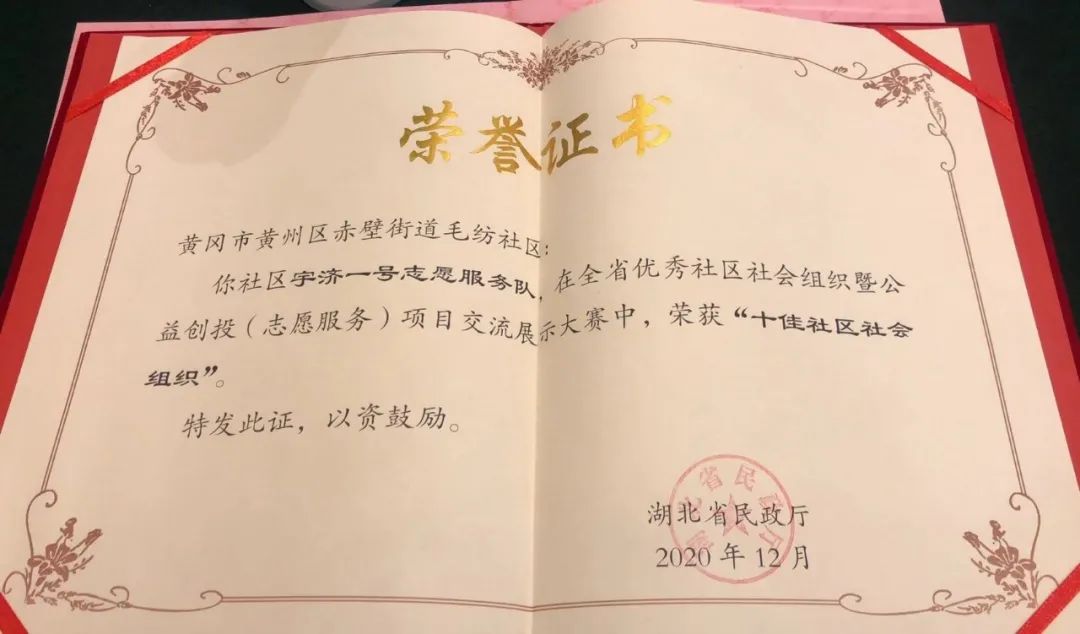 荣誉证书
黄冈市黄州区赤壁街道毛纺社区：
你社区宇济一号志愿服务队，在全省优秀社区社会组织暨公
益创投（志愿服务）项目交流展示大赛中，荣获“十佳社区社会
组织”。
特发此证，以资鼓励。
湖北省民政厅
湖北省民政厅
2020年12月